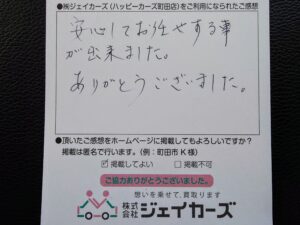 ●㈱ジェイカーズ（ハッピーカーズ町田店）をご利用になられたご感想
安心してお任せする事
が出来ました。
ありがとうございました。
●頂いたご感想をホームページに掲載してもよろしいですか?
掲載は匿名で行います。(例：町田市K様)
☑掲載してよい □掲載不可
ご協力ありがとうございました。
想いを乗せて、買取ります
株式会社ジェイカーズ